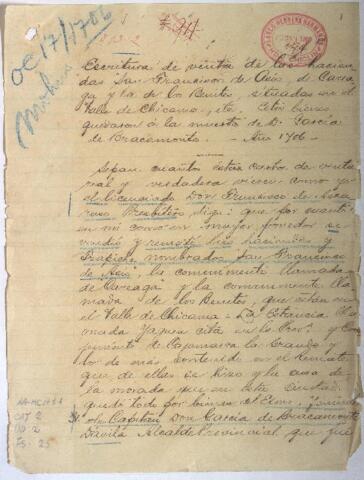 OC17/1706
Escritura de venta de las hacien
das San Francisco de Asís, de Carea
ga y la de los Benites, situadas en el
Valle de Chicama, etc. Estos bienes
quedaron á la muerte de D. García
de Bracamonte. - Año 1706 -
Sepan cuantos esta carta de venta
real y verdadera vieren como yo
el licenciado Don Francisco de
Presbítero digo: que por cuanto
en mi como en mayor ponedor se
vendió y remató las haciendas y
Trapiche nombrados San Francisco
de Asís la comunmente llamada
de Careaga y la comunmente lla
mada de los Benites, que están en
el Valle de Chicama - La Estancia lla
mada Yagua cita en la Prov.ª y Co
rregimiento de Cajamarca la Grande y
lo de más contenido en el Remate
que de ellas se hizo y la casa de
la morada que en esta Ciudad
quedó todo por bienes del
Capitán Don García de Bracamonte
Dávila Alcalde Provincial que fué